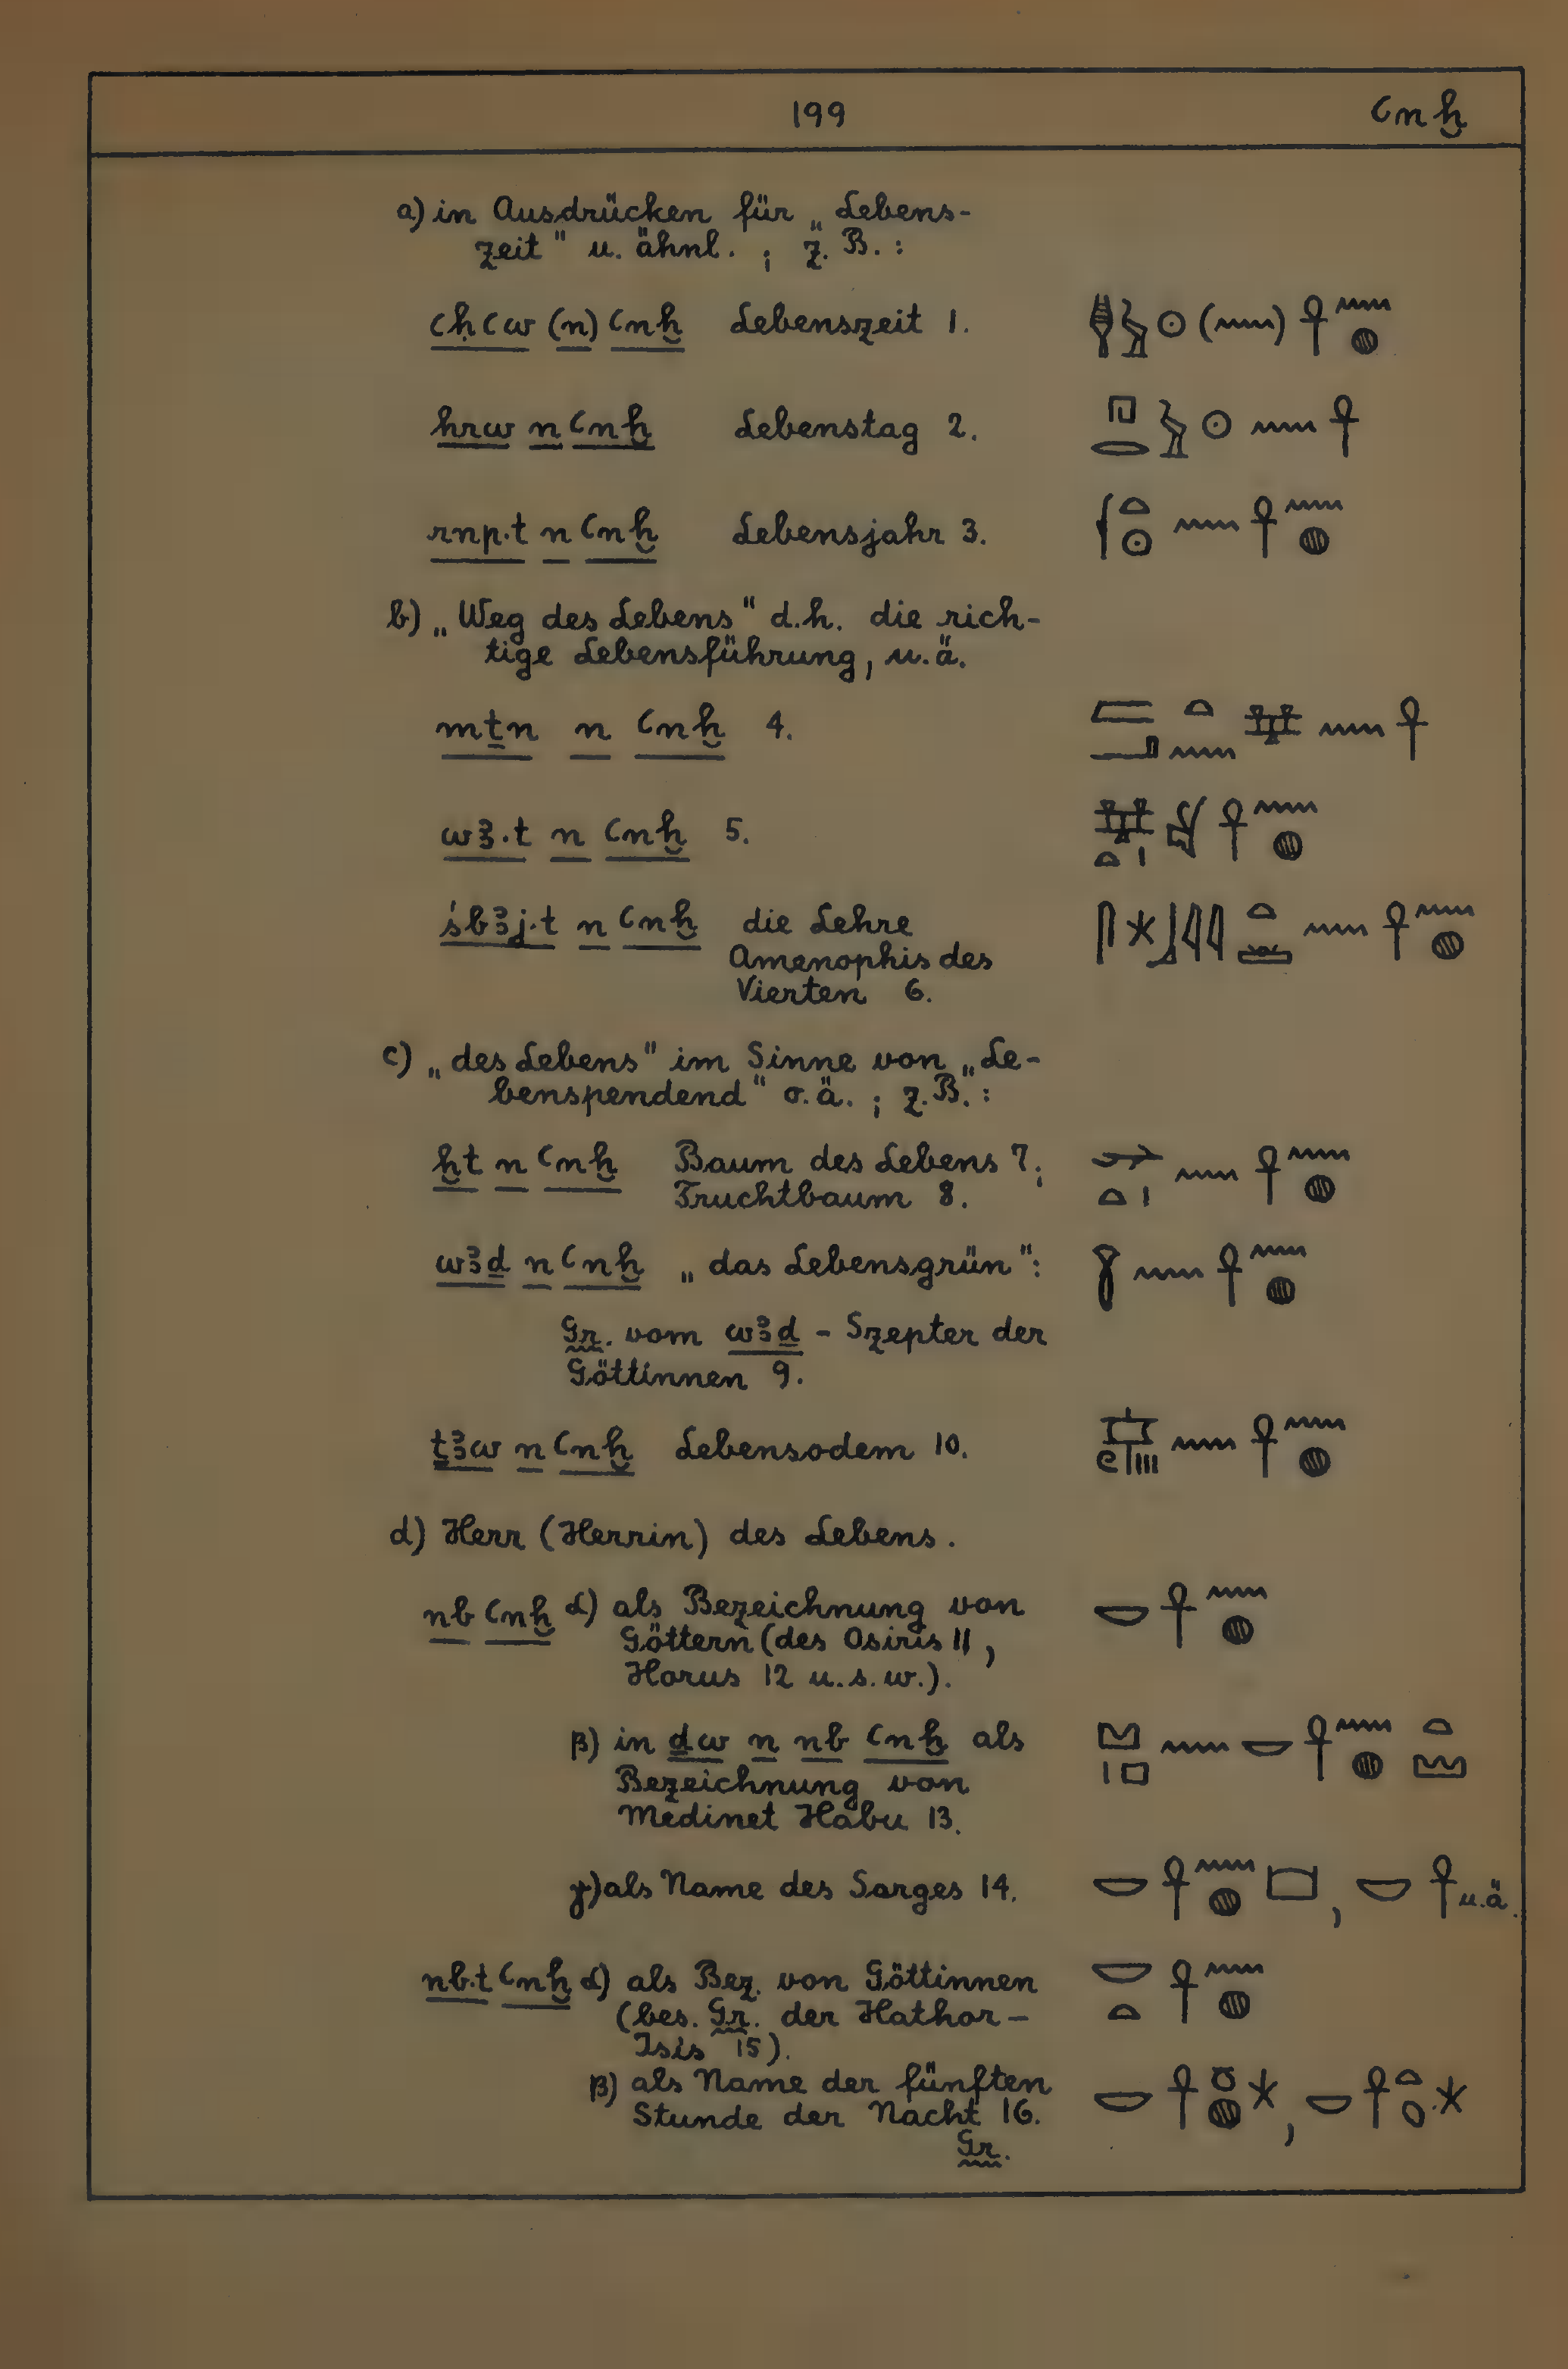 199 ꜥnḫ
a) in Ausdrücken für „Lebens-
zeit" u. ähnl. ; z. B. :
ꜥḥꜥw (n) ꜥnḫ Lebenszeit 1.
hrw n ꜥnḫ Lebenstag 2.
rnp.t n ꜥnḫ Lebensjahr 3.
b) „Weg des Lebens" d.h. die rich-
tige Lebensführung, u.ä.
mṯn n ꜥnḫ 4.
wꜣ.t n ꜥnḫ 5.
śbꜣj.t n ꜥnḫ die Lehre
Amenophis des
Vierten 6.
c) „des Lebens" im Sinne von „Le-
benspendend" o.ä. ; z.B. :
ḫt n ꜥnḫ Baum des Lebens 7;
Fruchtbaum 8.
wꜣḏ n ꜥnḫ „das Lebensgrün":
Gr. vom wꜣḏ - Szepter der
Göttinnen 9.
ṯꜣw n ꜥnḫ Lebensodem 10.
d) Herr (Herrin) des Lebens.
nb ꜥnḫ α) als Bezeichnung von
Göttern (des Osiris 11,
Horus 12 u.s.w.).
β) in ḏw n nb ꜥnḫ als
Bezeichnung von
Medinet Habu 13.
γ) als Name des Sarges 14. , u.ä.
nb.t ꜥnḫ α) als Bez. von Göttinnen
(bes. Gr. der Hathor-
Isis 15).
β) als Name der fünften
Stunde der Nacht 16.
Gr.